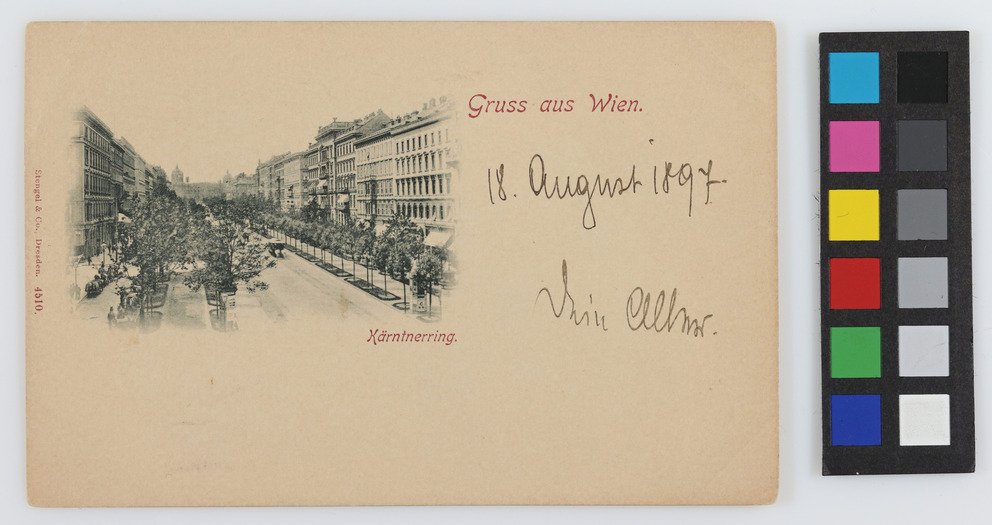 Gruss aus Wien.
18. August 1897.
Dein
Kärntnerring.
Stengel & Co., Dresden. 4510.